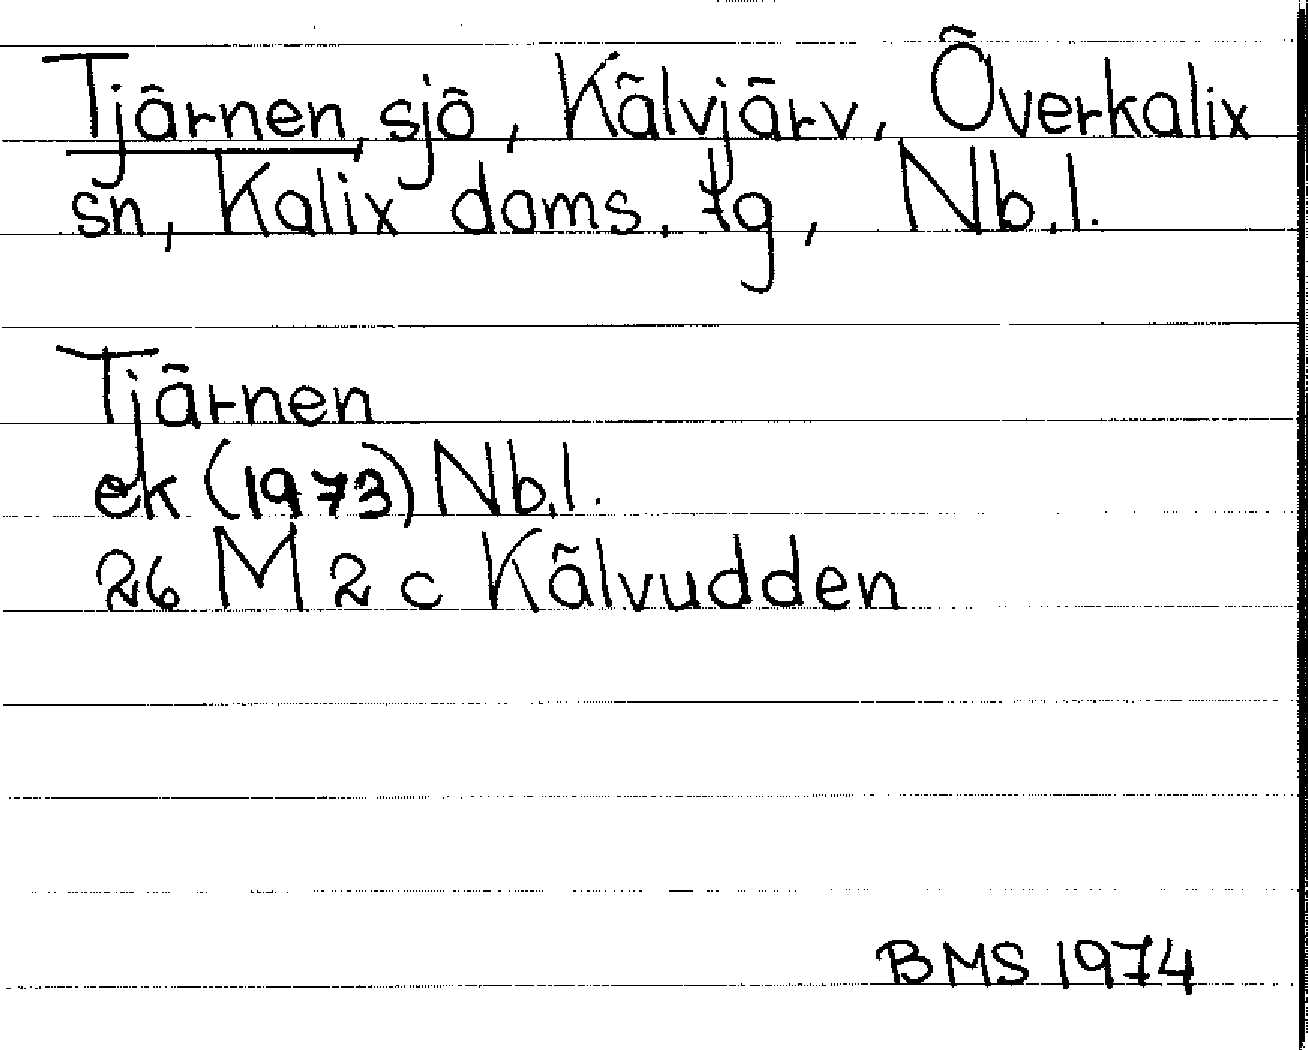 Tjärnen, sjö, Kälvjärv, Överkalix
sn, Kalix doms. tg, Nb.l.
Tjärnen
ek (1973) Nb.l.
26 M 2 c Kälvudden
BMS 1974